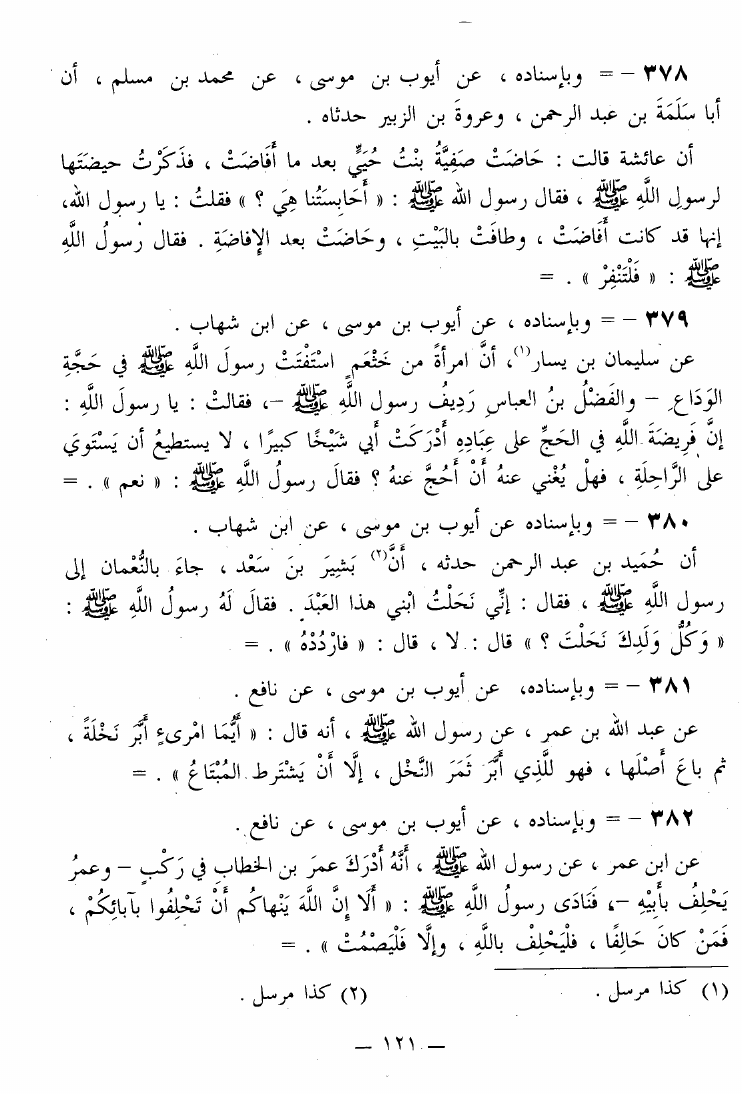 ٣٧٨ - = وبإسناده ، عن أيوب بن موسى ، عن محمد بن مسلم ، أن
أبا سَلَمَةَ بن عبد الرحمن ، وعروةَ بن الزبير حدثاه .
أن عائشة قالت : حَاضَتْ صَفِيَّةُ بِنْتُ حُيَيٍّ بعد ما أَفَاضَتْ ، فذكَرْتُ حيضتَها
لرسولِ اللَّهِ ﷺ ، فقال رسول الله ﷺ : « أَحَابِسَتُنا هِيَ ؟ » فقلتُ : يا رسول الله،
إنها قد كانت أَفاضَتْ ، وطافَتْ بالبَيْتِ ، وحَاضَتْ بعد الإفاضَةِ . فقال رسولُ اللَّهِ
ﷺ : « فَلْتَنْفِرْ » . =
٣٧٩ - = وبإسناده ، عن أيوب بن موسى ، عن ابن شهاب .
عن سليمان بن يسار(١)، أنَّ امرأةً من خَثْعَمٍ اسْتَفْتَتْ رسولَ اللَّهِ ﷺ في حَجَّةِ
الوَدَاعِ - والفَضْلُ بنُ العباسِ رَدِيفُ رسول اللَّهِ ﷺ -، فقالتْ : يا رسول اللَّهِ :
إنَّ فَرِيضَةَ اللَّهِ في الحَجِّ على عِبَادِهِ أَدْرَكَتْ أبي شَيْخًا كبيرًا ، لا يستطيعُ أن يَسْتَوي
على الرَّاحِلَةِ ، فهلْ يُغْني عنهُ أَنْ أَحُجَّ عنهُ ؟ فقالَ رسولُ اللَّهِ ﷺ : « نعم » . =
٣٨٠ - = وبإسناده عن أيوب بن موسى ، عن ابن شهاب .
أن حُمَيد بن عبد الرحمن حدثه ، أنَّ(٢) بَشِيرَ بنَ سَعْد ، جاءَ بالنُّعْمان إلى
رسول اللَّهِ ﷺ ، فقال : إنِّي نَحَلْتُ ابْني هذا العَبْدَ . فقالَ لَهُ رسولُ اللَّهِ ﷺ :
« وَكُلُّ وَلَدِكَ نَحَلْتَ ؟ » قال : لا ، قال : « فارْدُدْهُ » . =
٣٨١ - = وبإسناده، عن أيوب بن موسى ، عن نافع .
عن عبد الله بن عمر ، عن رسول الله ﷺ ، أنه قال : « أَيُّمَا امْرىءٍ أَبَّرَ نَخْلَةً ،
ثم باعَ أَصْلَها ، فهو للَّذِي أَبَّرَ ثَمَرَ النَّخْل ، إلَّا أَنْ يَشْتَرط المُبْتَاعُ » . =
٣٨٢ - = وبإسناده ، عن أيوب بن موسى ، عن نافع .
عن ابن عمر ، عن رسول الله ﷺ ، أَنَّهُ أَدْرَكَ عمرَ بن الخطاب في رَكْبٍ - وعمرُ
يَحْلِفُ بأَبيْهِ -، فَنَادَى رسولُ اللَّهِ ﷺ : « أَلَا إنَّ اللَّهَ يَنْهاكُم أَنْ تَحْلِفُوا بآبائِكُمْ ،
فَمَنْ كانَ حَالِفًا ، فلْيَحْلِفْ باللَّهِ ، وإلَّا فَلْيَصْمُتْ » . =
(١) كذا مرسل . (٢) كذا مرسل .
- ١٢١ -